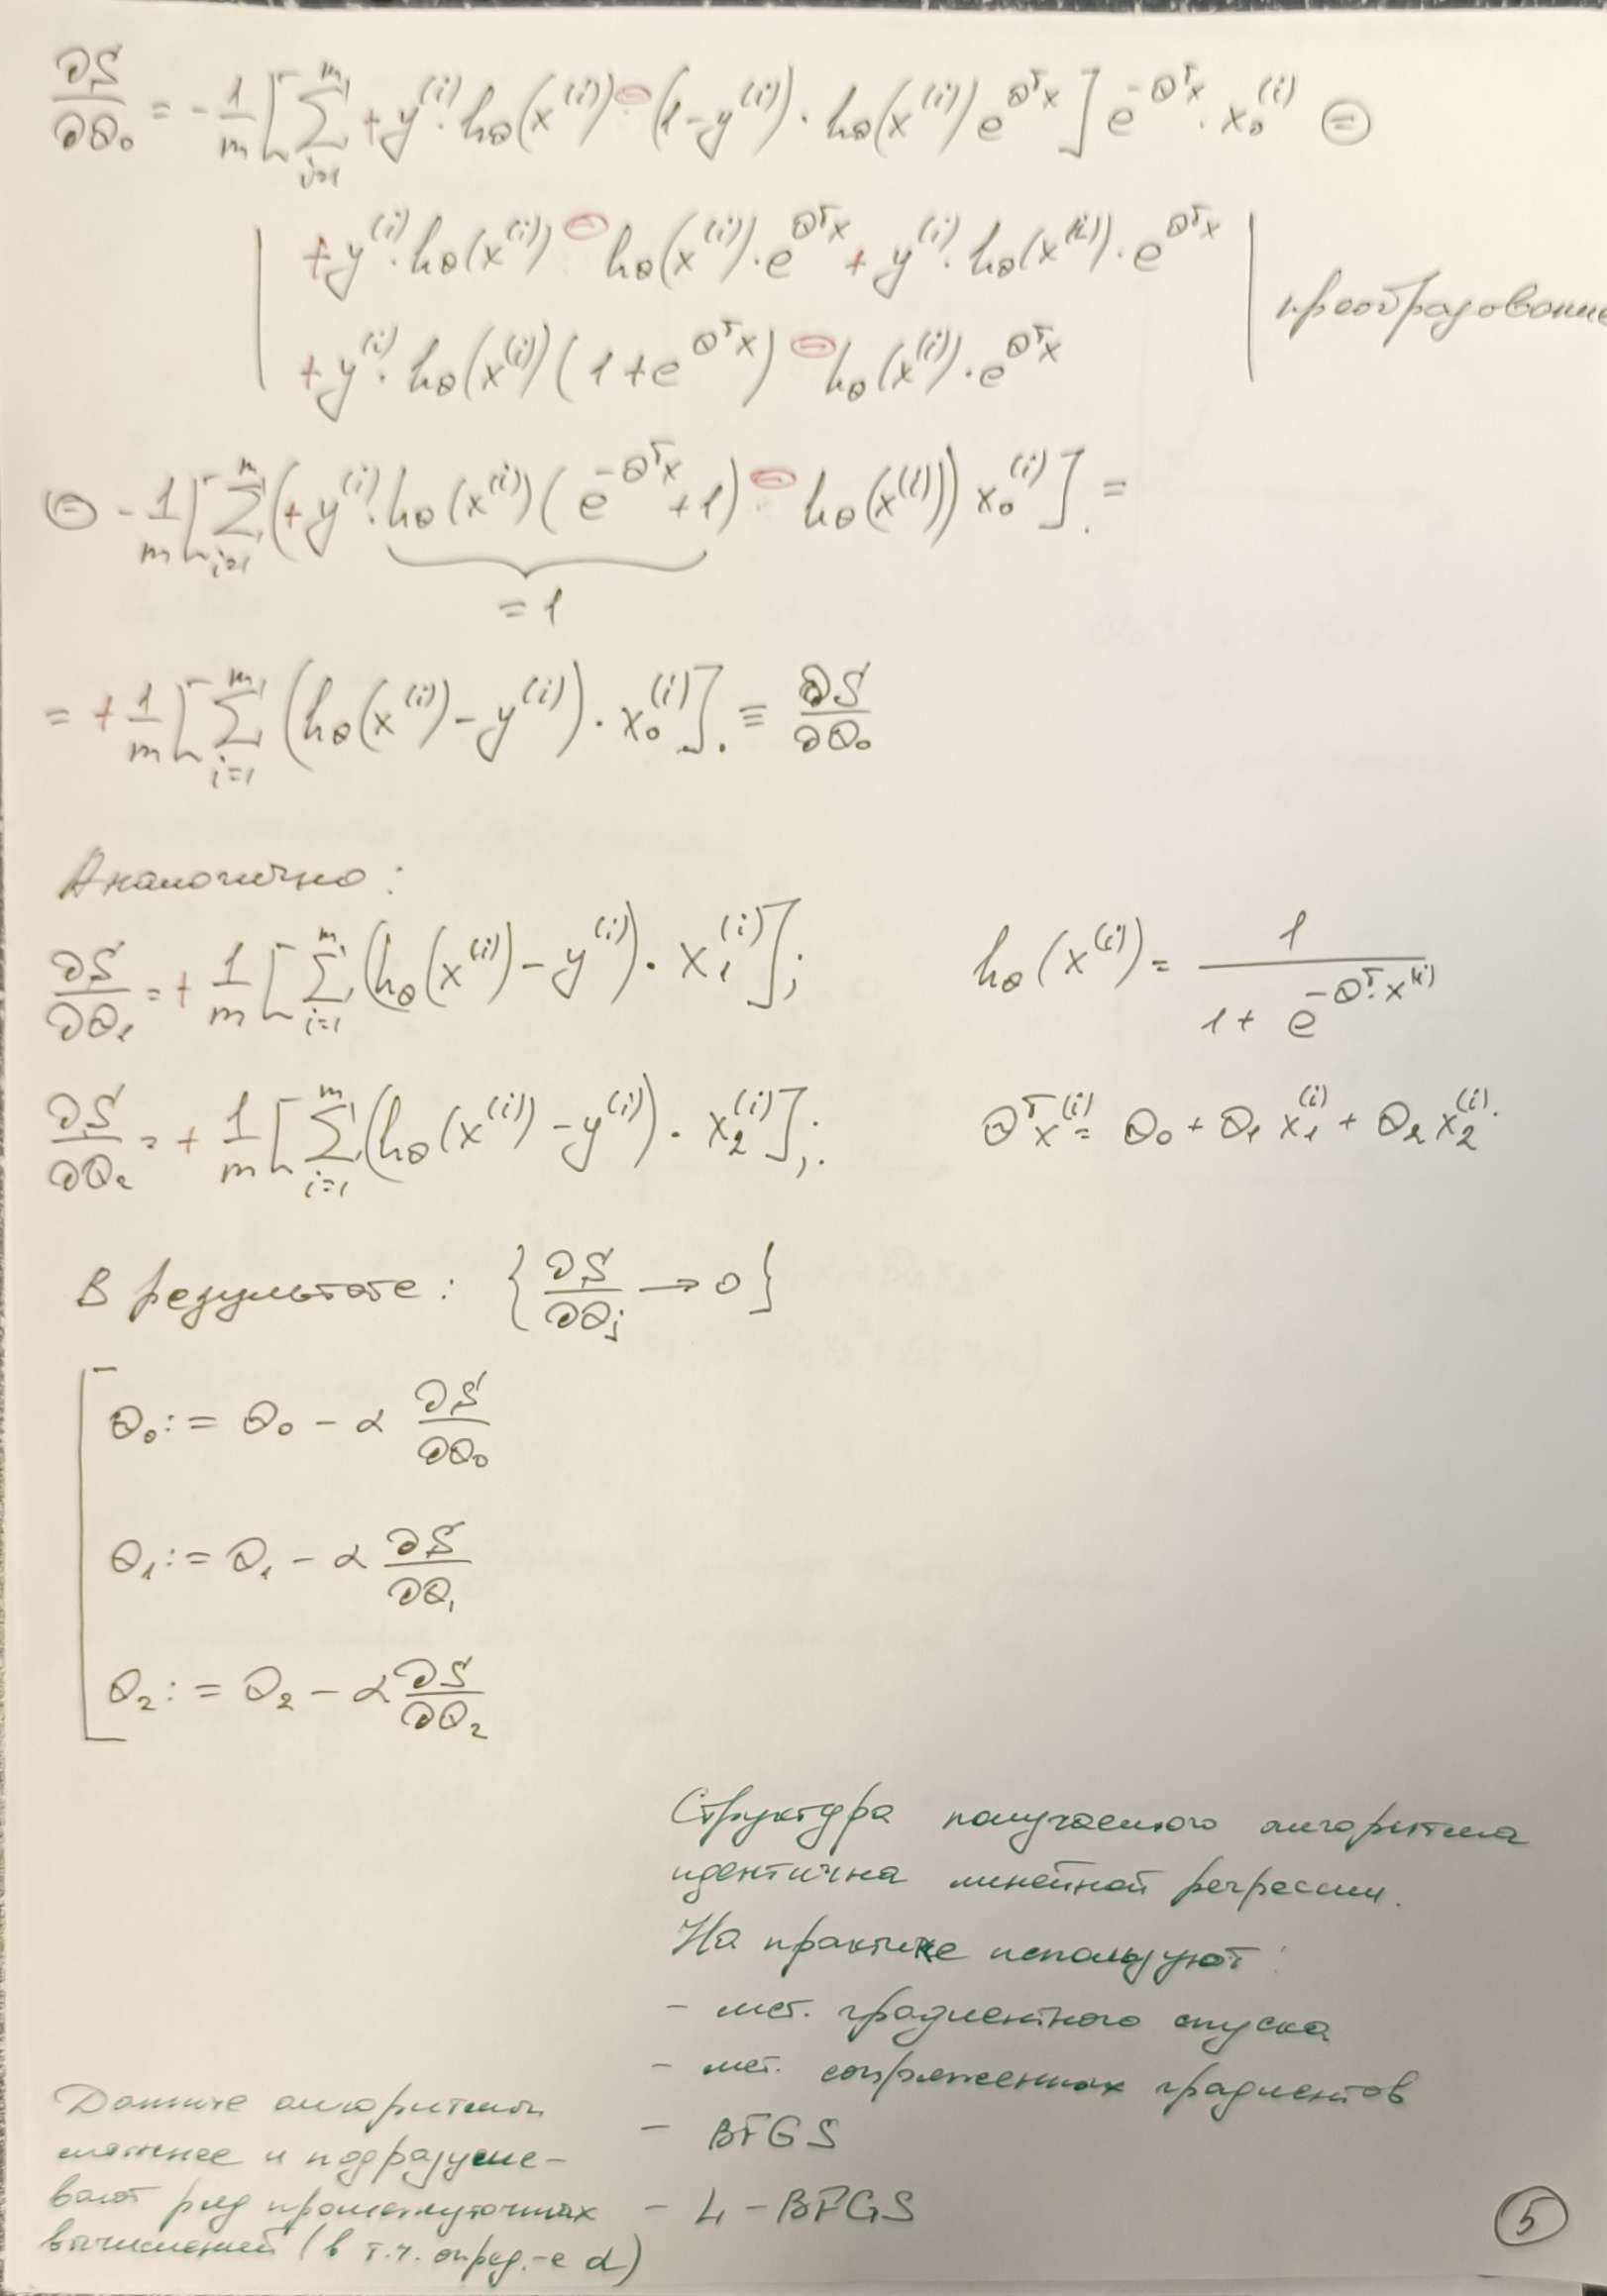 ∂S/∂Θ₀ = - 1/m [ Σ_{i=1}^{m} + y^{(i)} · h_Θ(x^{(i)}) - (1-y^{(i)}) · h_Θ(x^{(i)}) e^{Θ^T x} ] e^{-Θ^T x} · x₀^{(i)} ⊜
| + y^{(i)} · h_Θ(x^{(i)}) - h_Θ(x^{(i)}) · e^{Θ^T x} + y^{(i)} · h_Θ(x^{(i)}) · e^{Θ^T x} |
| + y^{(i)} · h_Θ(x^{(i)}) (1 + e^{Θ^T x}) - h_Θ(x^{(i)}) · e^{Θ^T x} | преобразование
⊜ - 1/m [ Σ_{i=1}^{m} ( + y^{(i)} · h_Θ(x^{(i)}) ( e^{-Θ^T x} + 1 ) - h_Θ(x^{(i)}) ) x₀^{(i)} ] . =
= 1
= + 1/m [ Σ_{i=1}^{m} ( h_Θ(x^{(i)}) - y^{(i)} ) · x₀^{(i)} ] . ≡ ∂S/∂Θ₀
Аналогично :
∂S/∂Θ₁ = + 1/m [ Σ_{i=1}^{m} ( h_Θ(x^{(i)}) - y^{(i)} ) · x₁^{(i)} ] ; h_Θ(x^{(i)}) = 1/(1 + e^{-Θ^T · x^{(i)}})
∂S/∂Θ₂ = + 1/m [ Σ_{i=1}^{m} ( h_Θ(x^{(i)}) - y^{(i)} ) · x₂^{(i)} ] ; Θ^T x^{(i)} = Θ₀ + Θ₁ x₁^{(i)} + Θ₂ x₂^{(i)}.
В результате : { ∂S/∂Θ_j → 0 }
Θ₀ := Θ₀ - α ∂S/∂Θ₀
Θ₁ := Θ₁ - α ∂S/∂Θ₁
Θ₂ := Θ₂ - α ∂S/∂Θ₂
Структура получаемого алгоритма
идентична линейной регрессии.
На практике используют :
- мет. градиентного спуска
- мет. сопряженных градиентов
- BFGS
- L-BFGS
Данные алгоритмы
сложнее и подразуме-
вают ряд промежуточных
вычислений (в т.ч. опред.-е α)
5